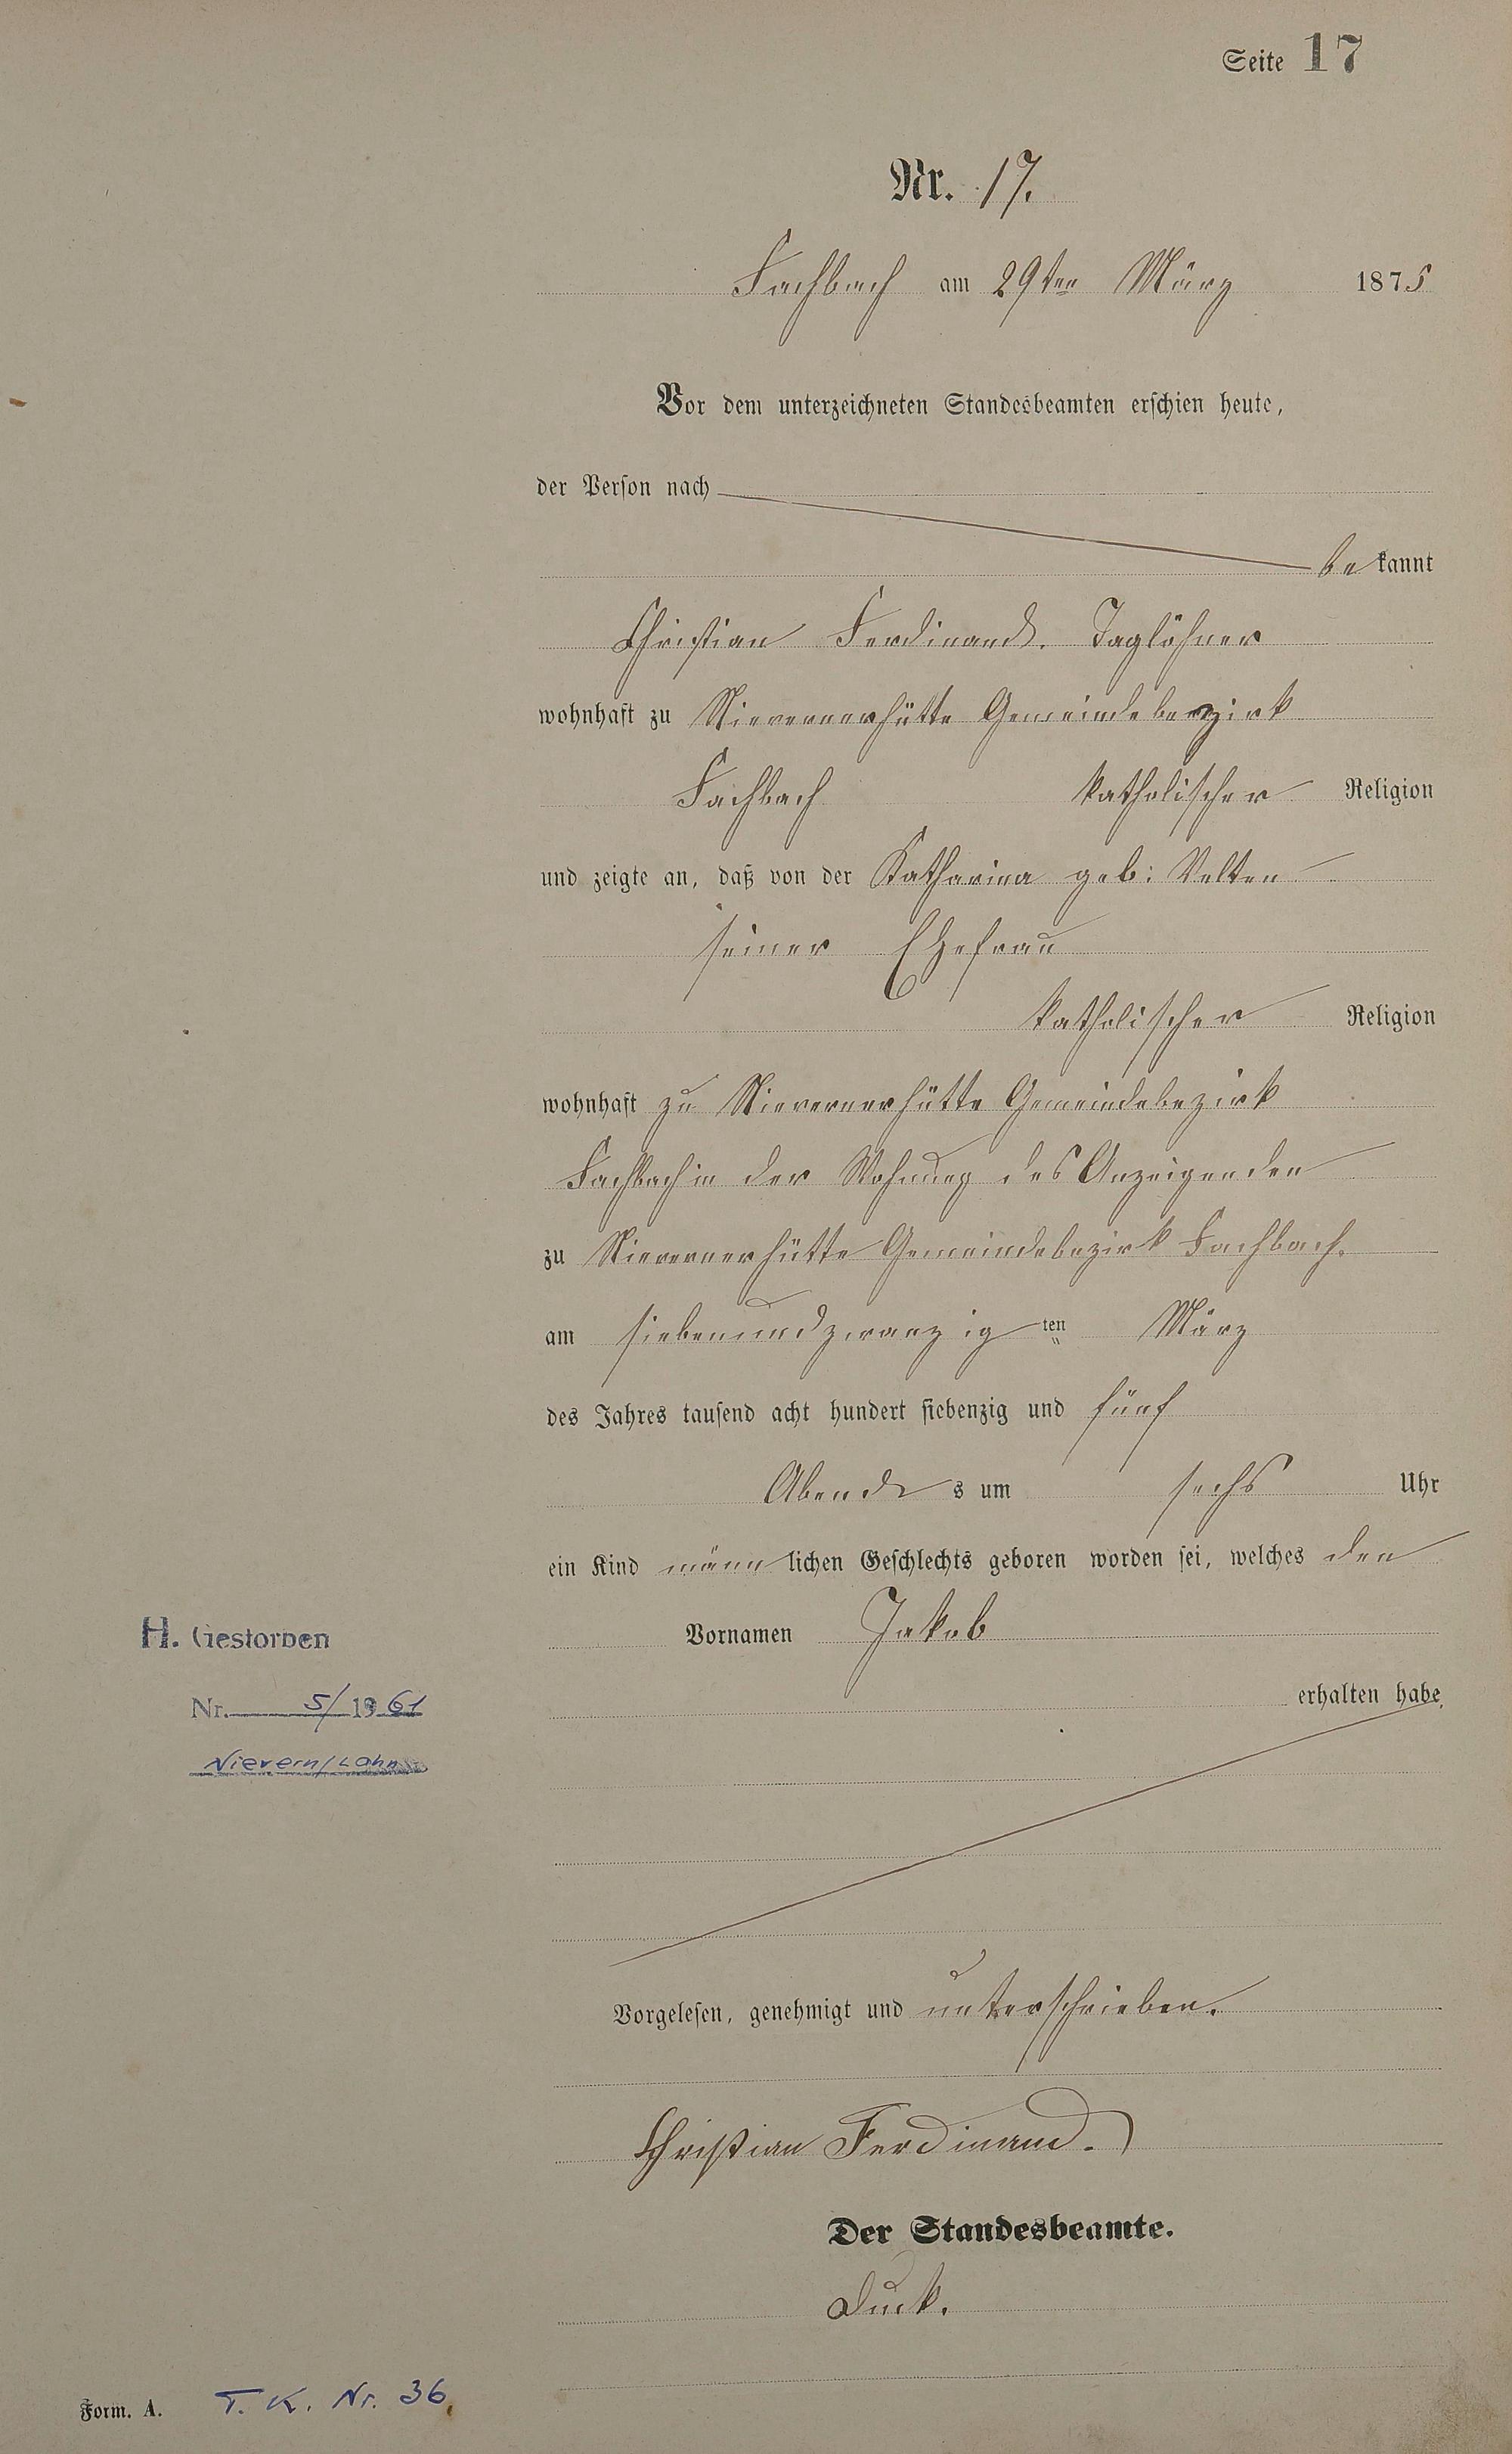 Seite 17
Nr. 17.
Fachbach am 29ten März 1875
Vor dem unterzeichneten Standesbeamten erschien heute,
der Person nach
bekannt
Christian Ferdinand. Taglöhner
wohnhaft zu Nievernerhütte Gemeindebezirk
Fachbach katholischer Religion
und zeigte an, daß von der Katharina geb: Velten
seiner Ehefrau
katholischer Religion
wohnhaft zu Nievernerhütte Gemeindebezirk
Fachbach in der Wohnung des Anzeigenden
zu Nievernerhütte Gemeindebezirk Fachbach.
am siebenundzwanzigten März
des Jahres tausend acht hundert siebenzig und fünf
Abends um sechs Uhr
ein Kind männlichen Geschlechts geboren worden sei, welches den
Vornamen Jakob
erhalten habe,
H. Gestorben
Nr. 5/1961
Nievern/Lahn
Vorgelesen, genehmigt und unterschrieben.
Christian Ferdinand.
Der Standesbeamte.
Duck.
Form. A. T. K. Nr. 36.